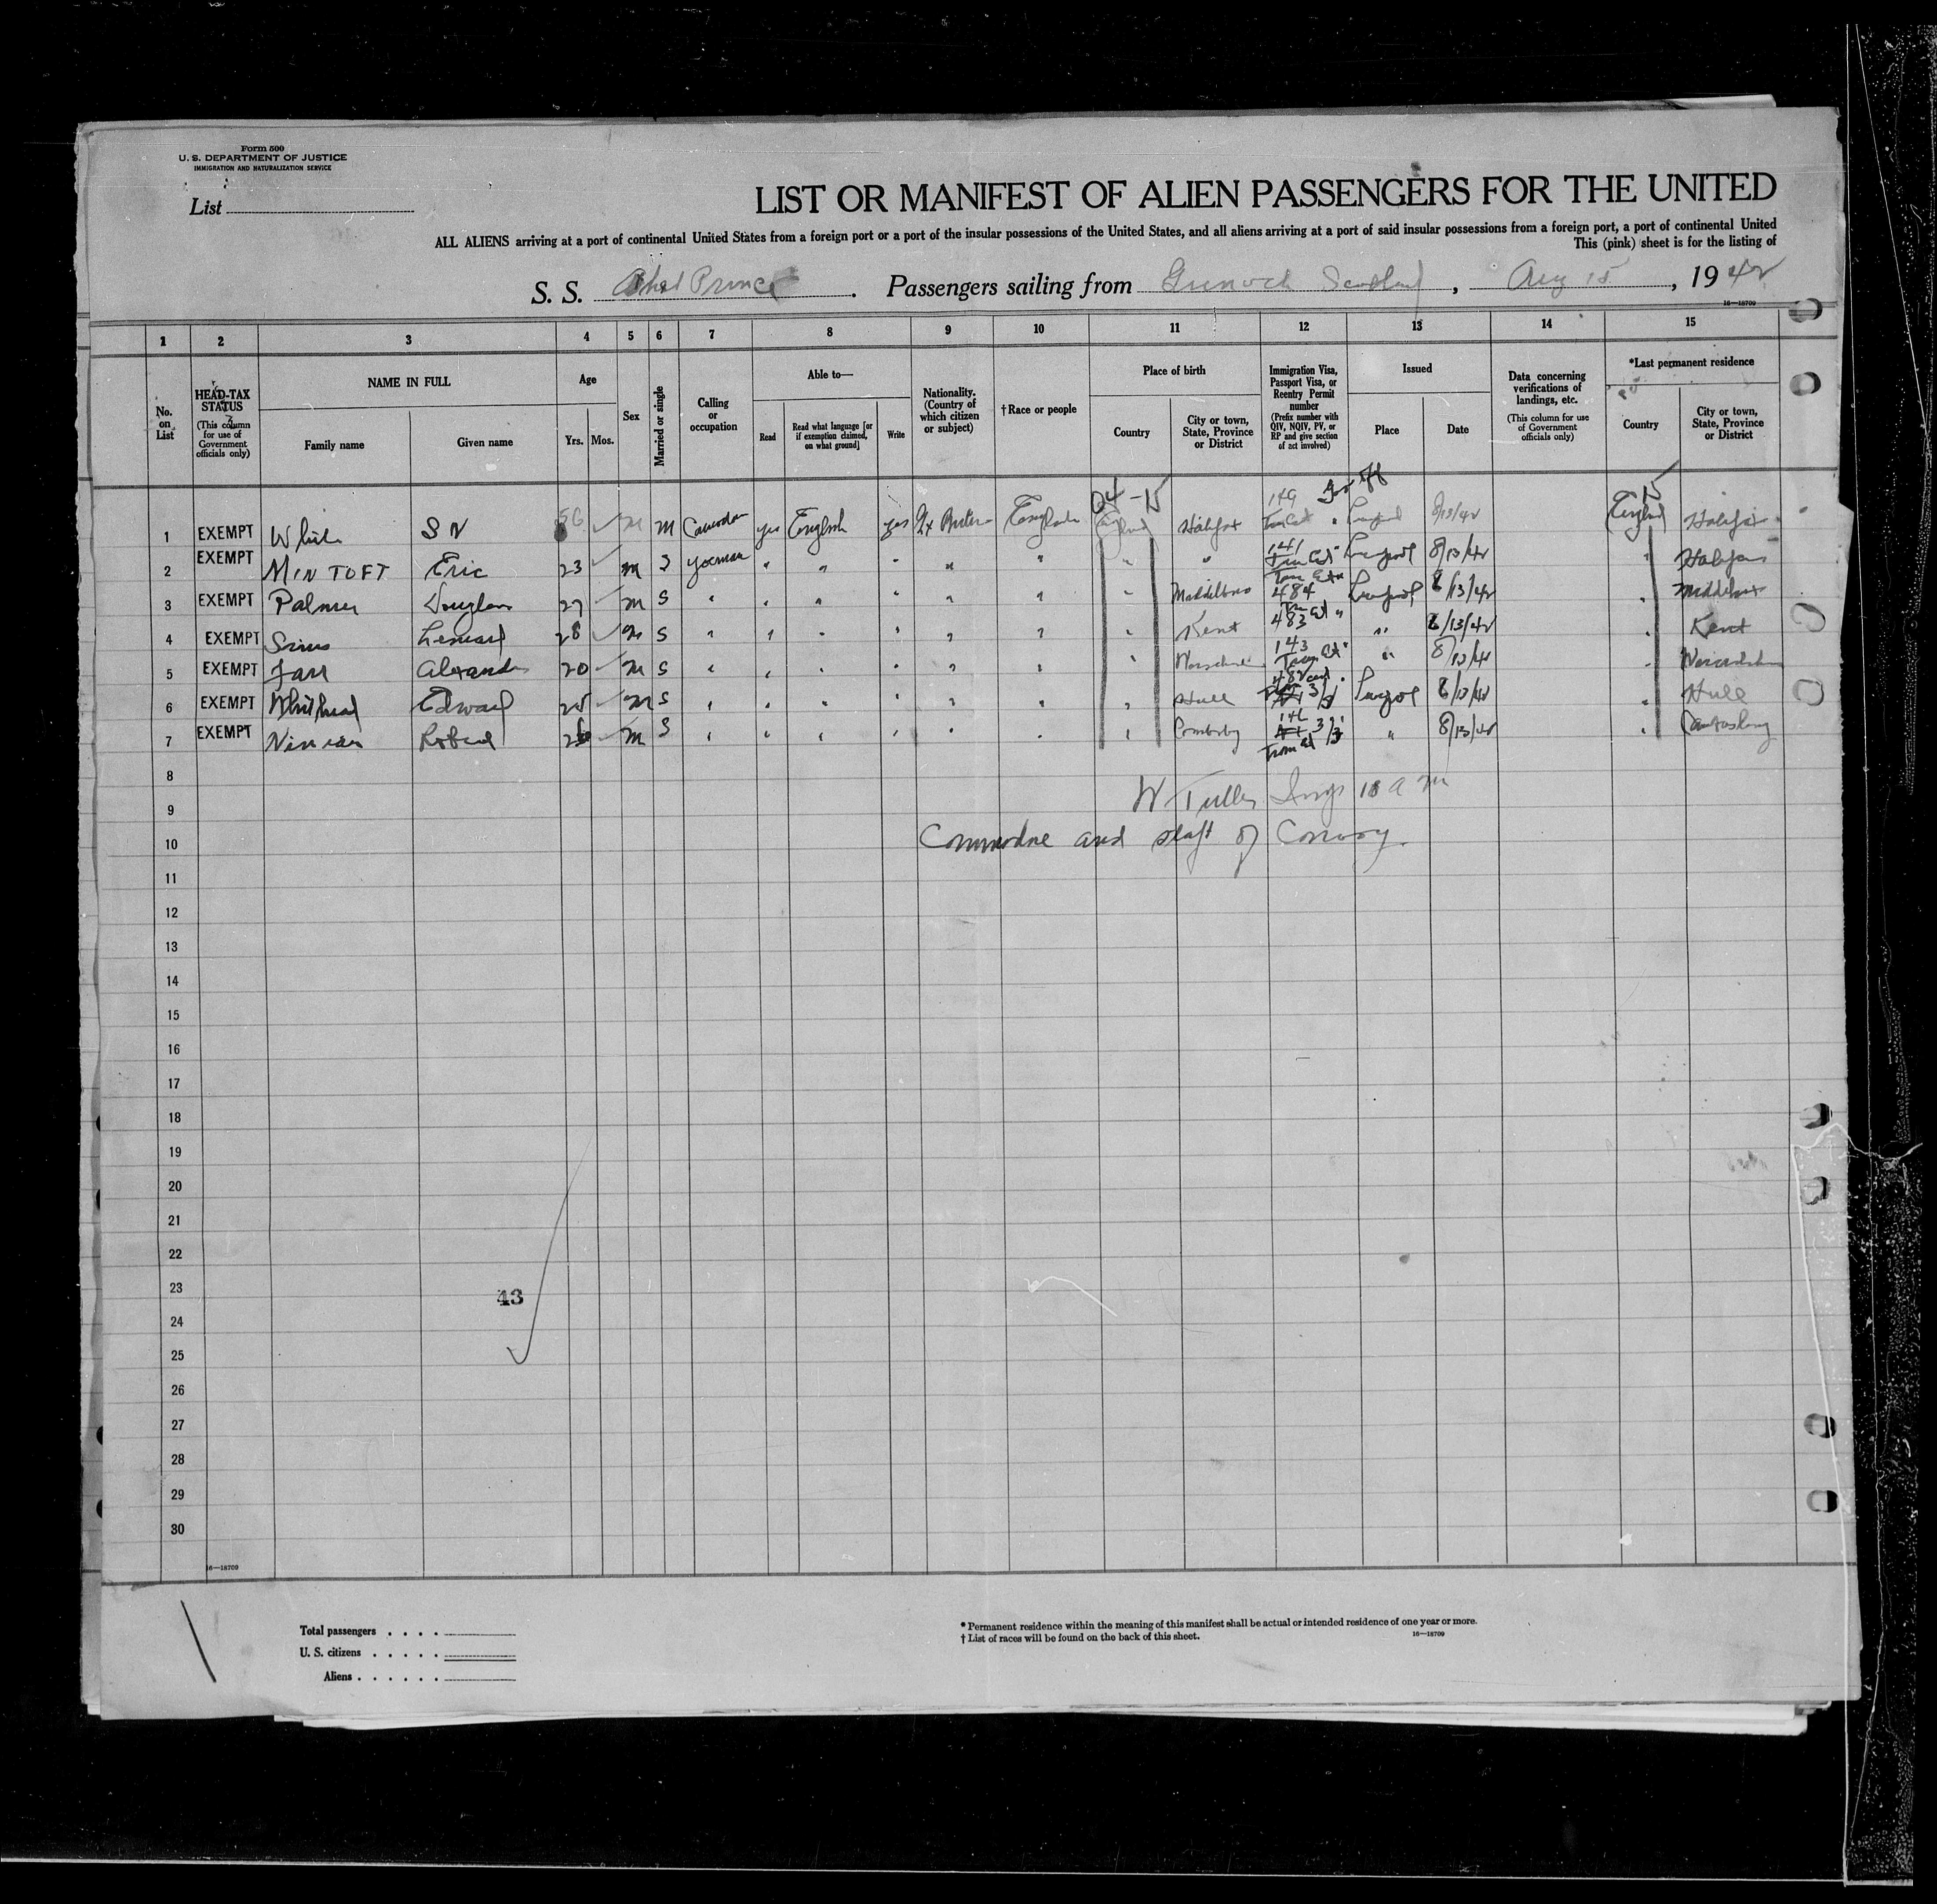 Form 500
U. S. DEPARTMENT OF JUSTICE
IMMIGRATION AND NATURALIZATION SERVICE
List
LIST OR MANIFEST OF ALIEN PASSENGERS FOR THE UNITED
ALL ALIENS arriving at a port of continental United States from a foreign port or a port of the insular possessions of the United States, and all aliens arriving at a port of said insular possessions from a foreign port, a port of continental United
This (pink) sheet is for the listing of
S. S. Prince. Passengers sailing from Greenock Scotland, Aug 15, 1942
16—18709
1 2 3 4 5 6 7 8 9 10 11 12 13 14 15
No. on List
HEAD-TAX STATUS (This column for use of Government officials only)
NAME IN FULL
Family name
Given name
Age
Yrs. Mos.
Sex
Married or single
Calling or occupation
Able to—
Read
Read what language [or if exemption claimed, on what ground]
Write
Nationality. (Country of which citizen or subject)
†Race or people
Place of birth
Country
City or town, State, Province or District
Immigration Visa, Passport Visa, or Reentry Permit number (Prefix number with QIV, NQIV, PV, or RP and give section of act involved)
Issued
Place
Date
Data concerning verifications of landings, etc. (This column for use of Government officials only)
*Last permanent residence
Country
City or town, State, Province or District
1 EXEMPT White S N 56 M M yes English yes England Halifax 149 8/13/42 England Halifax
2 EXEMPT MINTOFT Eric 23 M S Yeoman " " " " " " 141 Liverpool 8/13/42 " Halifax
3 EXEMPT Palmer Douglas 27 M S " " " " " " " 484 Liverpool 8/13/42 "
4 EXEMPT Sims Leonard 28 M S " " " " " " " Kent 483 " 8/13/42 " Kent
5 EXEMPT Farr Alexander 20 M S " " " " " " " 143 " 8/13/42 "
6 EXEMPT Whithead Edward 25 M S " " " " " " " Hull 482 Liverpool 8/13/42 " Hull
7 EXEMPT Robert M S " " " " " " " 146 " 8/13/42 "
8
W Tulley Insp 10 a m
9
10 Commodore and staff of Convoy.
11
12
13
14
15
16
17
18
19
20
21
22
23
43
24
25
26
27
28
29
30
16—18709
Total passengers . . . .
U. S. citizens . . . . .
Aliens . . . . . .
* Permanent residence within the meaning of this manifest shall be actual or intended residence of one year or more.
† List of races will be found on the back of this sheet. 16—18709